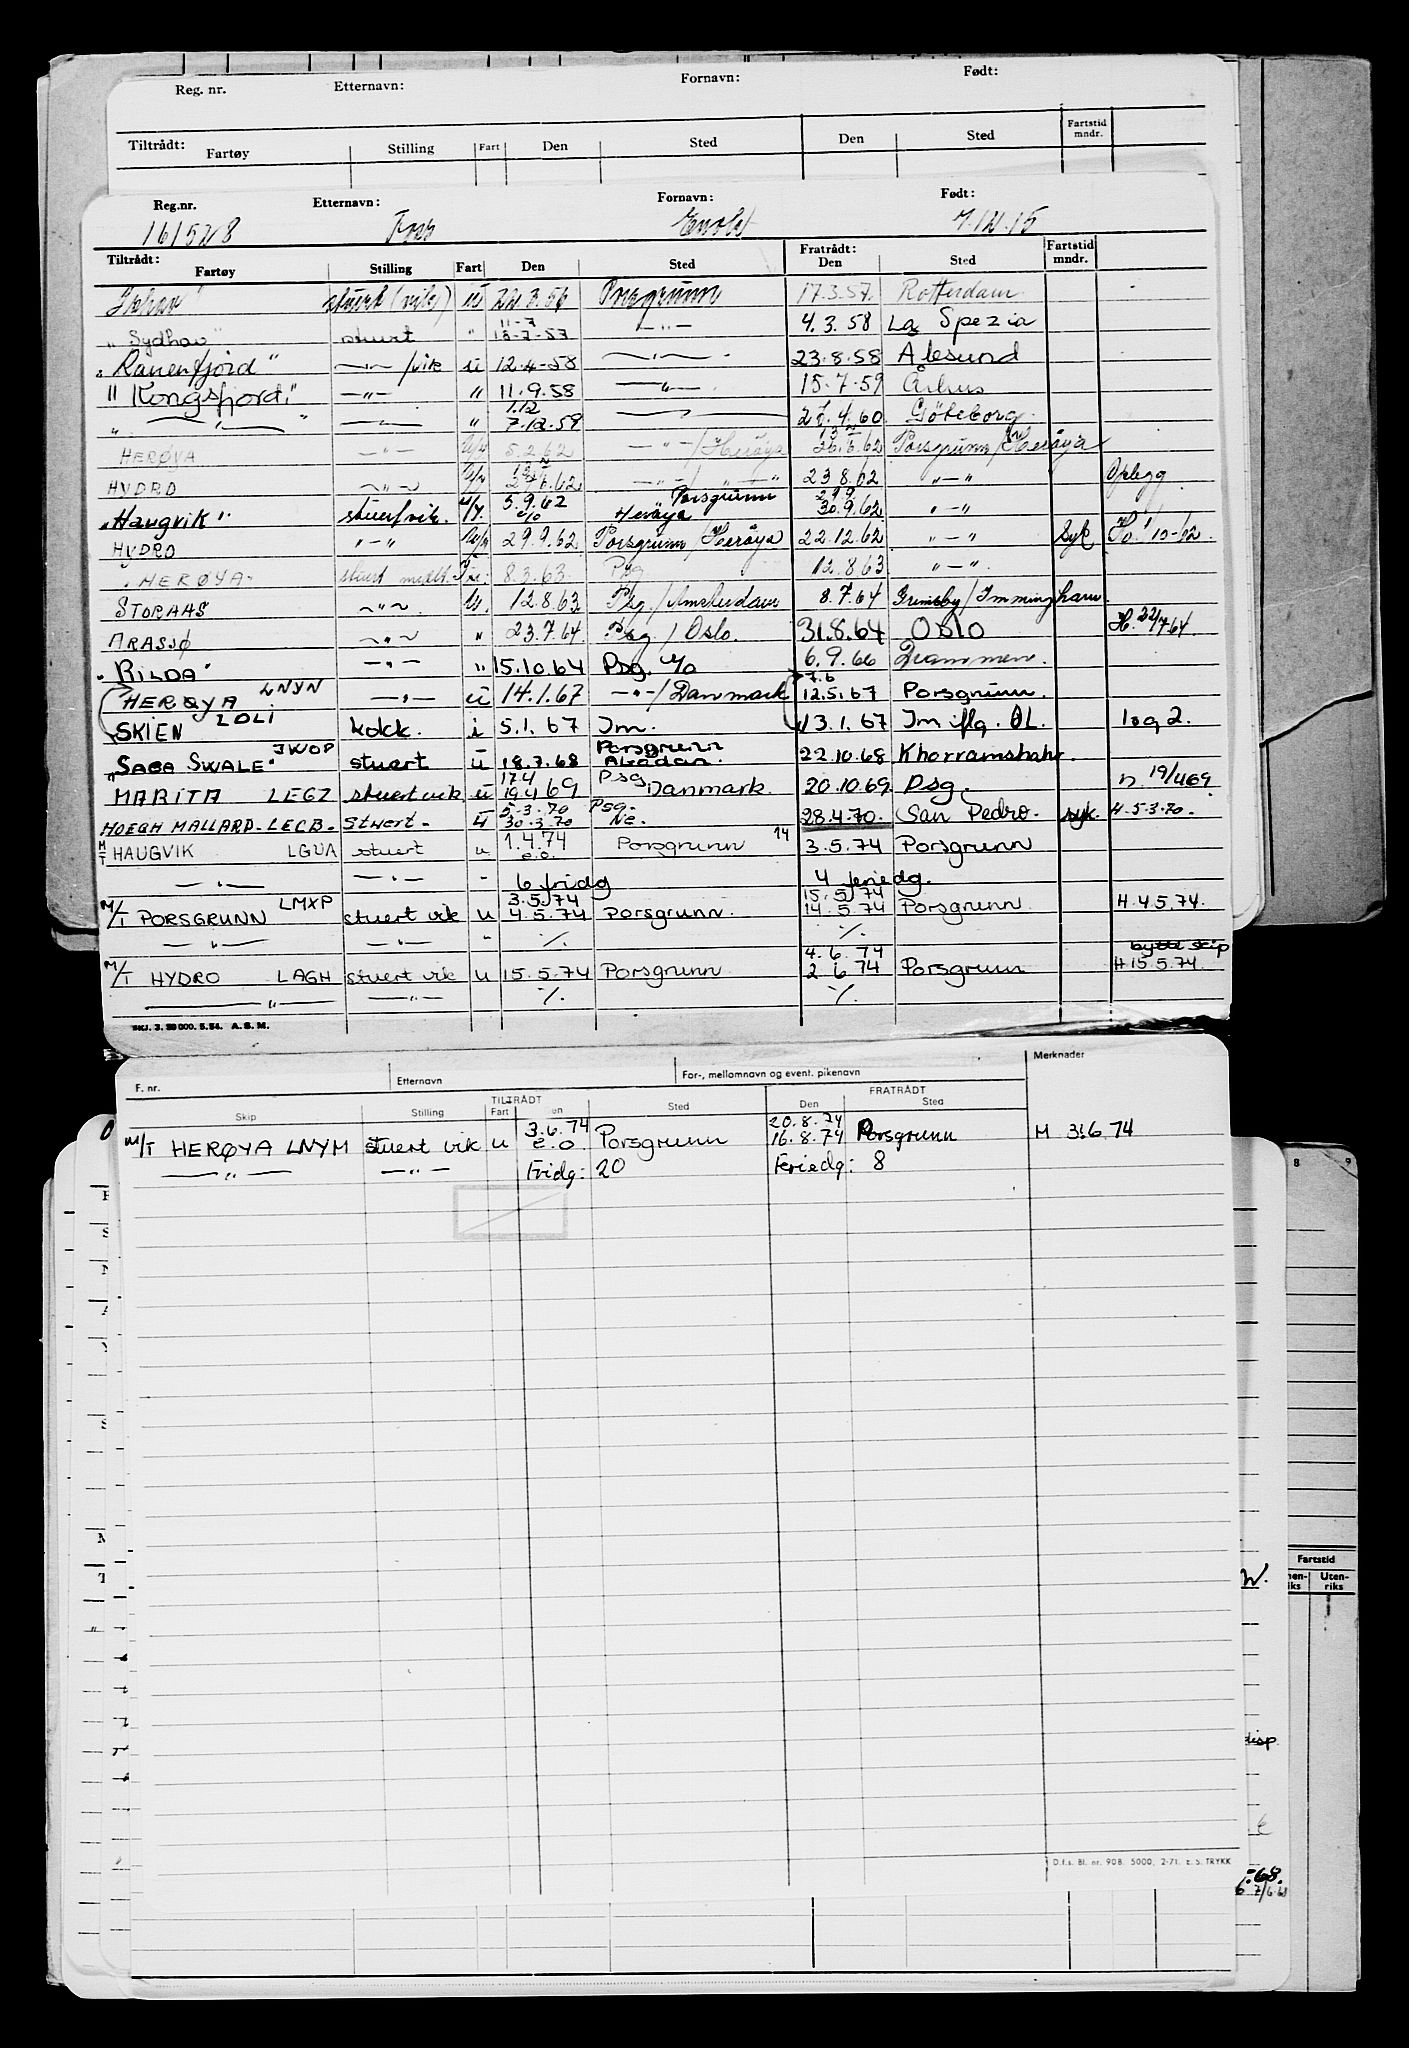 Reg. nr. Etternavn: Fornavn: Født:
Tiltrådt: Fartøy Stilling Fart Den Sted Den Sted Fartstid mndr.
Reg.nr. Etternavn: Fornavn: Født:
161528 Foss 7.12.15
Tiltrådt: Fartøy Stilling Fart Den Sted Fratrådt: Den Sted Fartstid mndr.
stuert (vik) u 22.3.56 Porsgrunn 17.3.57. Rotterdam
"Sydhav" stuert " 11-7 — " — 4.3.58 La Spezia
"Ranenfjord" — " — /vik u 12.4-58 — " — 23.8.58 Ålesund
"Kongsfjord" — " — " 11.9.58 — " — 15.7.59 Århus
" — " — " " 1.12 7.12.59 — " — 4.60 Göteborg
HERØYA — " — 5.2.62 — " — / Herøya 26.6.62 Porsgrunn / Herøya
HYDRO — " — 6.62 — " — / — " — 23.8.62 " — " Opplegg
"Haugvik" stuert/vik. 5.9.62 e/o Porsgrunn Herøya 29.9 30.9.62 " — "
HYDRO " — " 29.9.62 Porsgrunn / Herøya 22.12.62 " — " Syk
"HERØYA" stuert 8.3.63 Psg 12.8.63 " — "
STORAAS — " — U. 12.8.63 Psg. / Amsterdam 8.7.64 Grimsby / Immingham.
ARASSJØ — " — " 23.7.64 Psg / Oslo. 31.8.64 OSLO H. 22/7-64
"RILDA" — " — " 15.10.64 Psg. 6.9.66 Drammen.
"HERØYA LNYN — " — u 14.1.67 — " — / Danmark 7.6 12.5.67 Porsgrunn.
SKIEN LOLI kokk. i 5.1.67 Im. 13.1.67 Im iflg. ØL. 1 og 2.
"SAGA SWALE" JWOP stuert u 18.7.68 Porsgrunn Abadan. 22.10.68 Khorramshahr.
MARITA LEGZ stuert vik u 17.4 19.4.69 Psg Danmark. 20.10.69 Psg. n. 19/4 69.
HOEGH MALLARD - LECB - Stuert - u 5.3.70 30.3.70 Psg. Ne. 28.4.70. San Pedro. syk. H. 5.3.70.
M/T HAUGVIK LGUA stuert u 1.4.74 e.o. Porsgrunn 14 3.5.74 Porsgrunn
— " — — " — - 6 fridg 4 feriedg.
M/T PORSGRUNN LMXP stuert vik u 3.5.74 4.5.74 Porsgrunn. 15.5.74 14.5.74 Porsgrunn H. 4.5.74.
— " — — " — " %. %.
M/T HYDRO LAGH stuert vik u 15.5.74 Porsgrunn 4.6.74 2 6 74 Porsgrunn bytte skip H 15.5.74.
— " — — " — %. %.
SKJ. 3. 50 000. 5. 54. A. S. M.
F. nr. Etternavn For-, mellomnavn og event. pikenavn Merknader
TILTRÅDT FRATRÅDT
Skip Stilling Fart Den Sted Den Sted
M/T HERØYA LNYM stuert vik u 3.6.74 e.o. Porsgrunn 20.8.74 16.8.74 Porsgrunn M 3.6.74
— " — — " — Fridg: 20 Feriedg: 8
8 9
Fartstid
Uten-riks
W.
disp.
D.f.s. Bl. nr. 90B. 5000, 2-71. E. S. TRYKK